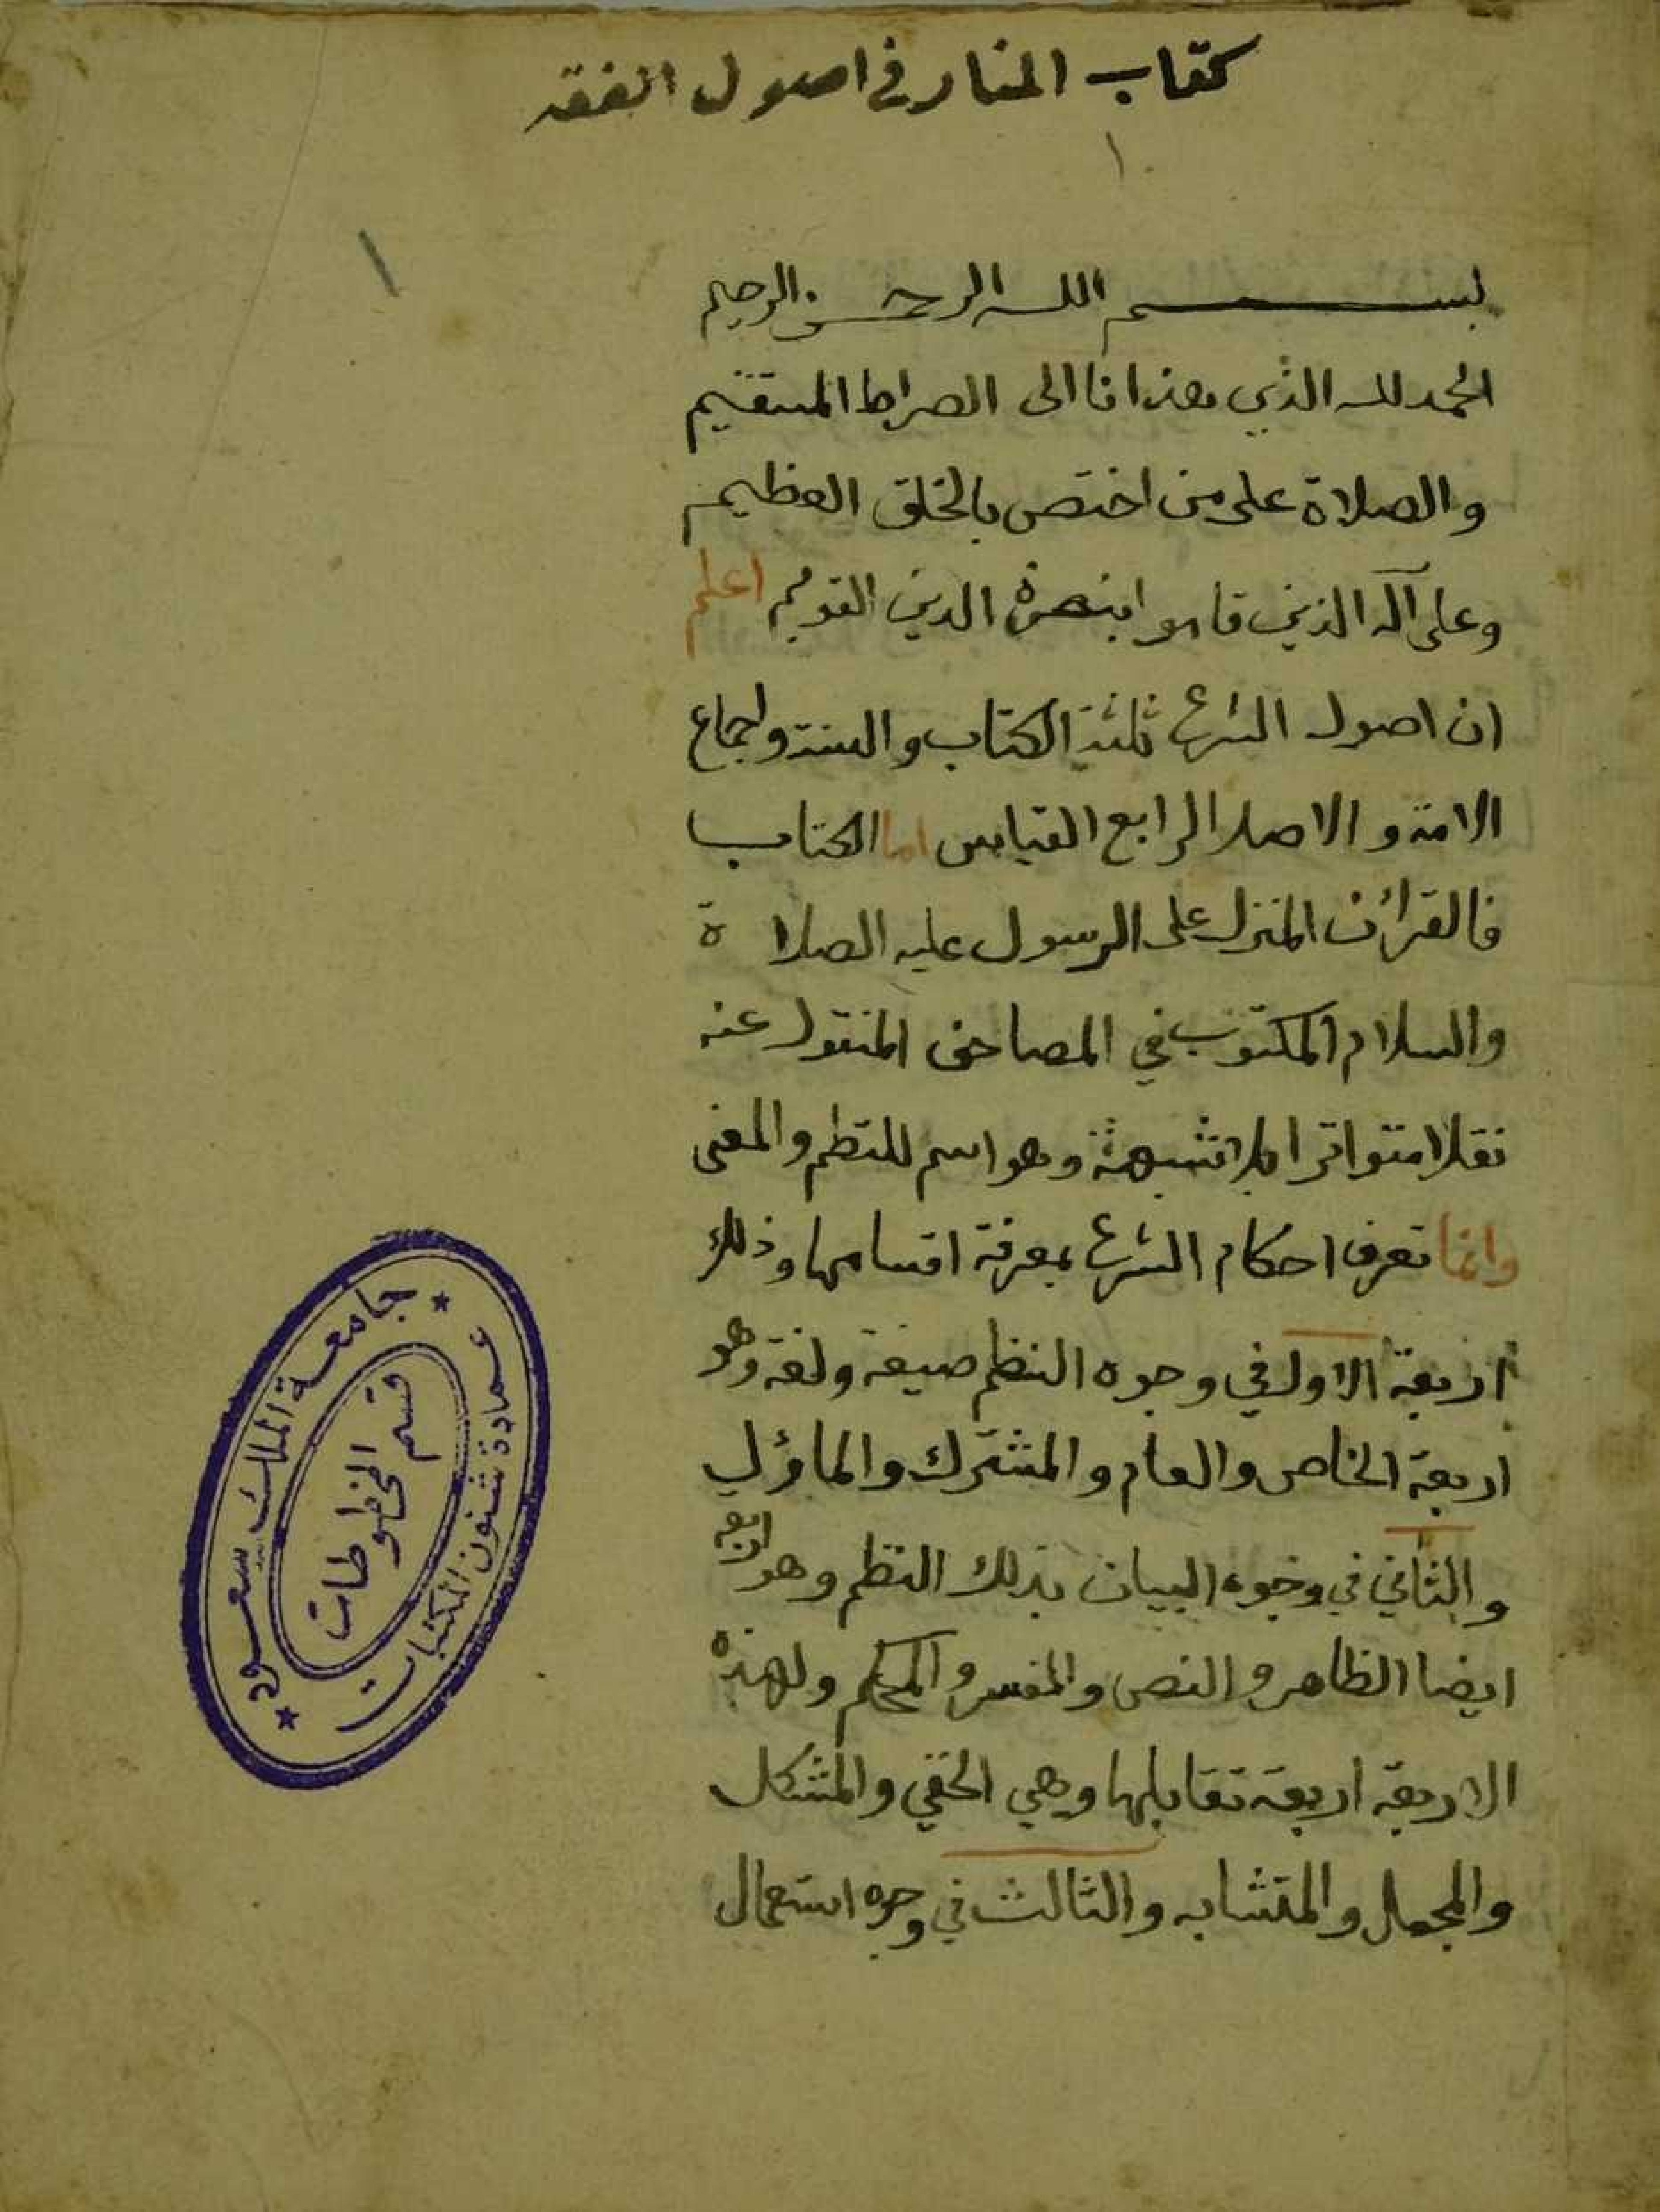 كتاب المنار في اصول الفقه
١
١
بسم الله الرحمن الرحيم
الحمد لله الذي هذانا الى الصراط المستقيم
والصلاة على من اختص بالخلق العظيم
وعلى آله الذين قاموا بنصرة الدين القويم اعلم
ان اصول الشرع ثلثة الكتاب والسنة واجماع
الامة و الاصل الرابع القياس اما الكتاب
فالقرأن المنزل على الرسول عليه الصلاة
والسلام المكتوب في المصاحف المنقول عنه
نقلا متواترا بلا شبهة وهو اسم للنظم والمعنى
وانما تعرف احكام الشرع بمعرفة اقسامها وذلك
اربعة الاول في وجوه النظم صيغة ولغة وهو
اربعة الخاص والعام والمشترك والماؤل
والثاني في وجوه البيان بذلك النظم وهو اربعة
ايضا الظاهر والنص والمفسر والمحكم ولهذه
الاربعة اربعة تقابلها وهي الخفي والمشكل
والمجمل والمتشابه والثالث في وجوه استعمال
جامعة الملك سعود
عمادة شئون المكتبات
قسم المخطوطات